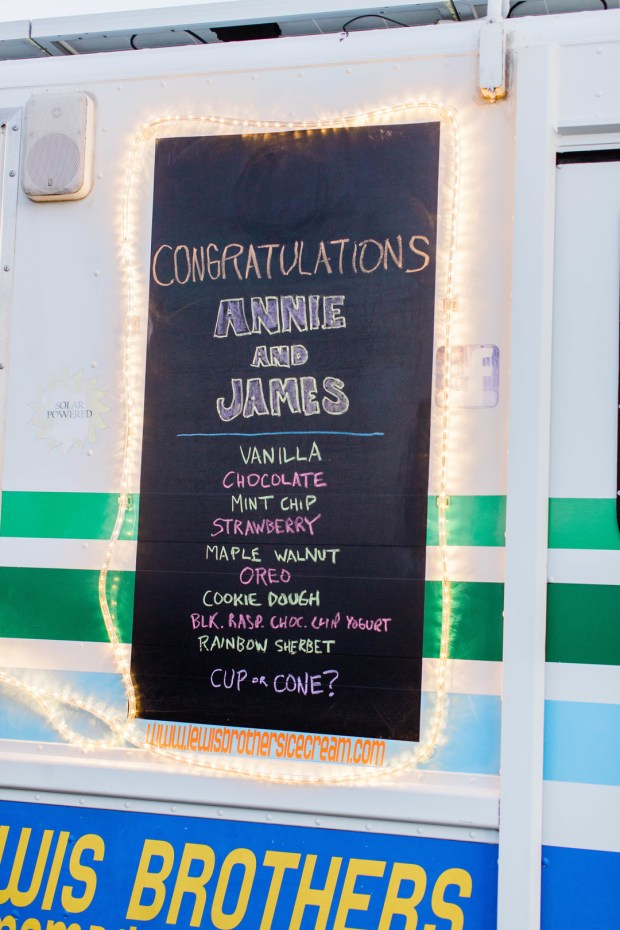 CONGRATULATIONS
ANNIE
AND
JAMES
VANILLA
CHOCOLATE
MINT CHIP
STRAWBERRY
MAPLE WALNUT
OREO
COOKIE DOUGH
BLK. RASP. CHOC. CHIP YOGURT
RAINBOW SHERBET
CUP OR CONE?
www.lewisbrothersicecream.com
SOLAR
POWERED
WIS BROTHERS